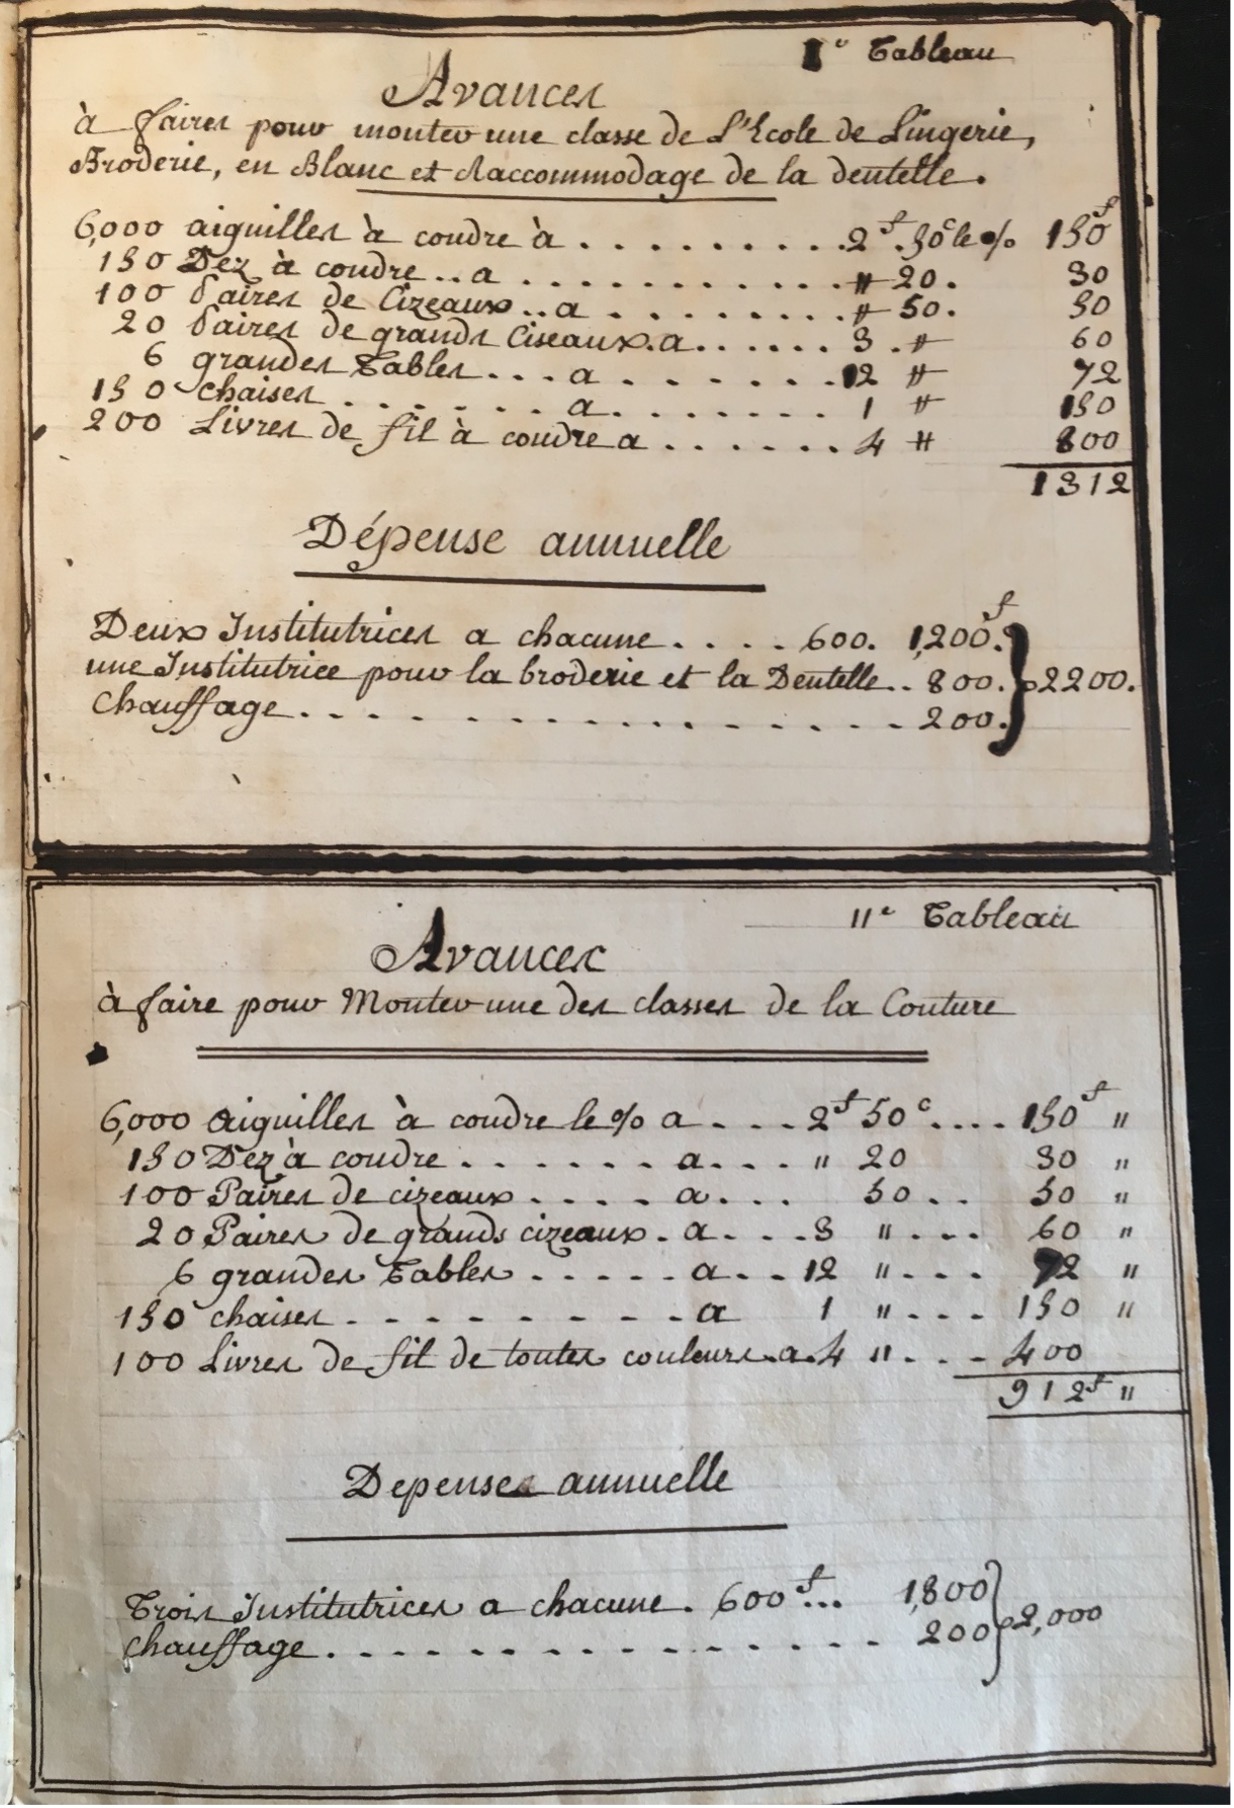 1er Tableau
Avances
à faires pour monter une classe de L'Ecole de Lingerie,
Broderie, en Blanc et Raccommodage de la dentelle.
6,000 aiguilles à coudre à . . . . . . . . . . 2f. 50c le % 150f
150 Dez à coudre .. a . . . . . . . . . . . . . " 20. 30
100 Paires de Cizeaux .. a . . . . . . . . . " 50. 50
20 Paires de grands Ciseaux. a . . . . . . 3 . " 60
6 grandes Tables . . . a . . . . . . . . 12 " 72
150 chaises . . . . . . . a . . . . . . . . 1 " 150
200 Livres de fil à coudre a . . . . . . 4 " 800
1312
Dépense annuelle
Deux Institutrices a chacune . . . . 600. 1,200f.
une Institutrice pour la broderie et la Dentelle .. 800. 2200.
Chauffage . . . . . . . . . . . . . . . . . . 200.
11e Tableau
Avances
à faire pour Monter une des classes de la Couture
6,000 aiguilles à coudre le % a . . . . 2f 50c . . . . 150f "
150 Dez à coudre . . . . . . . a . . . " 20 30 "
100 Paires de cizeaux . . . . a . . . 50 . . 50 "
20 Paires de grands cizeaux . a . . . . 3 " . . . 60 "
6 grandes Tables . . . . . a . . . 12 " . . . 72 "
150 chaises . . . . . . . . . a 1 " . . . 150 "
100 Livres de fil de toutes couleurs . a . 4 " . . . 400
912f "
Depenses annuelle
Trois Institutrices a chacune . 600f ... 1,800
chauffage . . . . . . . . . . . . . . . 200 2,000